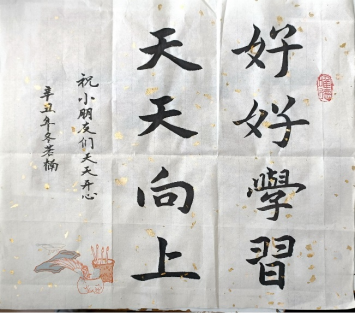 好好學習
天天向上
祝小朋友们天天开心
辛丑年冬若楠